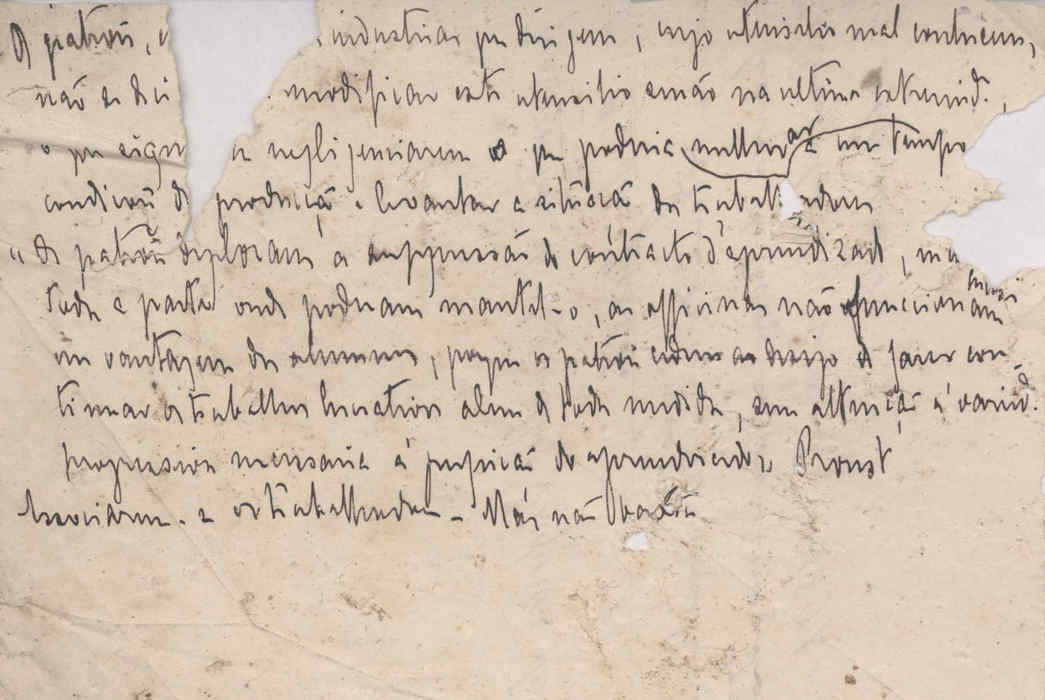 Os patrões, industrias que dirigem, cujo utensilio mal conhecem,
não se deci modificar este utensilio senão na ultima extremid.,
o que signi negligenciarem o que poderia melhorar a um tempo
condições de producção e levantar a situação dos trabalhadores
"Os patrões deploram a suppressão do contracto d'aprendizado, mas
toda a parte onde poderiam mantel-o, as officinas não funccionam
em vantagem dos alumnos, porque os patrões cedem ao desejo de fazer con
tinuar os trabalhos lucrativos alem de toda medida, sem attenção á varied.
progressiva necessaria á perfeição do aprendizado" Proust
Associarem-se os trabalhadores - Mas não